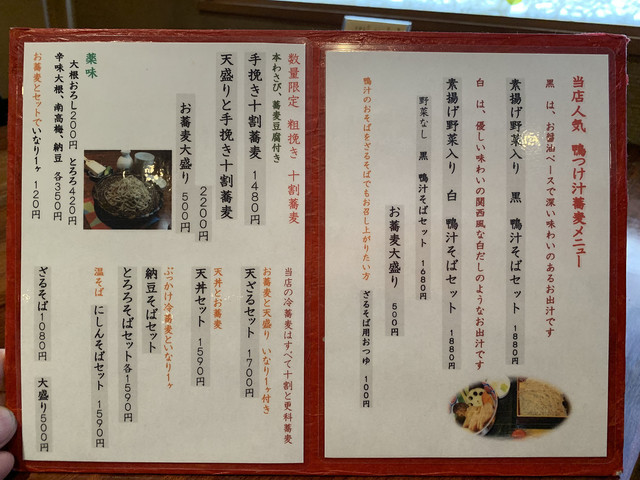 当店人気 鴨つけ汁蕎麦メニュー
黒 は、お醤油ベースで深い味わいのあるお出汁です
素揚げ野菜入り 黒 鴨汁そばセット 1880円
白 は、優しい味わいの関西風な白だしのようなお出汁です
素揚げ野菜入り 白 鴨汁そばセット 1880円
野菜なし 黒 鴨汁そばセット 1680円
お蕎麦大盛り 500円
鴨汁のおそばをざるそばでもお召し上がりたい方
ざるそば用おつゆ 100円
数量限定 粗挽き 十割蕎麦
本わさび、蕎麦豆腐付き
手挽き十割蕎麦 1480円
天盛りと手挽き十割蕎麦
2200円
お蕎麦大盛り 500円
薬味
大根おろし200円 とろろ420円
辛味大根、南高梅、納豆 各350円
お蕎麦とセットでいなり1ヶ 120円
当店の冷蕎麦はすべて十割と更科蕎麦
お蕎麦と天盛り いなり1ヶ付き
天ざるセット 1700円
天丼とお蕎麦
天丼セット 1590円
ぶっかけ冷蕎麦といなり1ヶ
納豆そばセット
とろろそばセット各1590円
温そば にしんそばセット 1590円
ざるそば1080円 大盛り500円